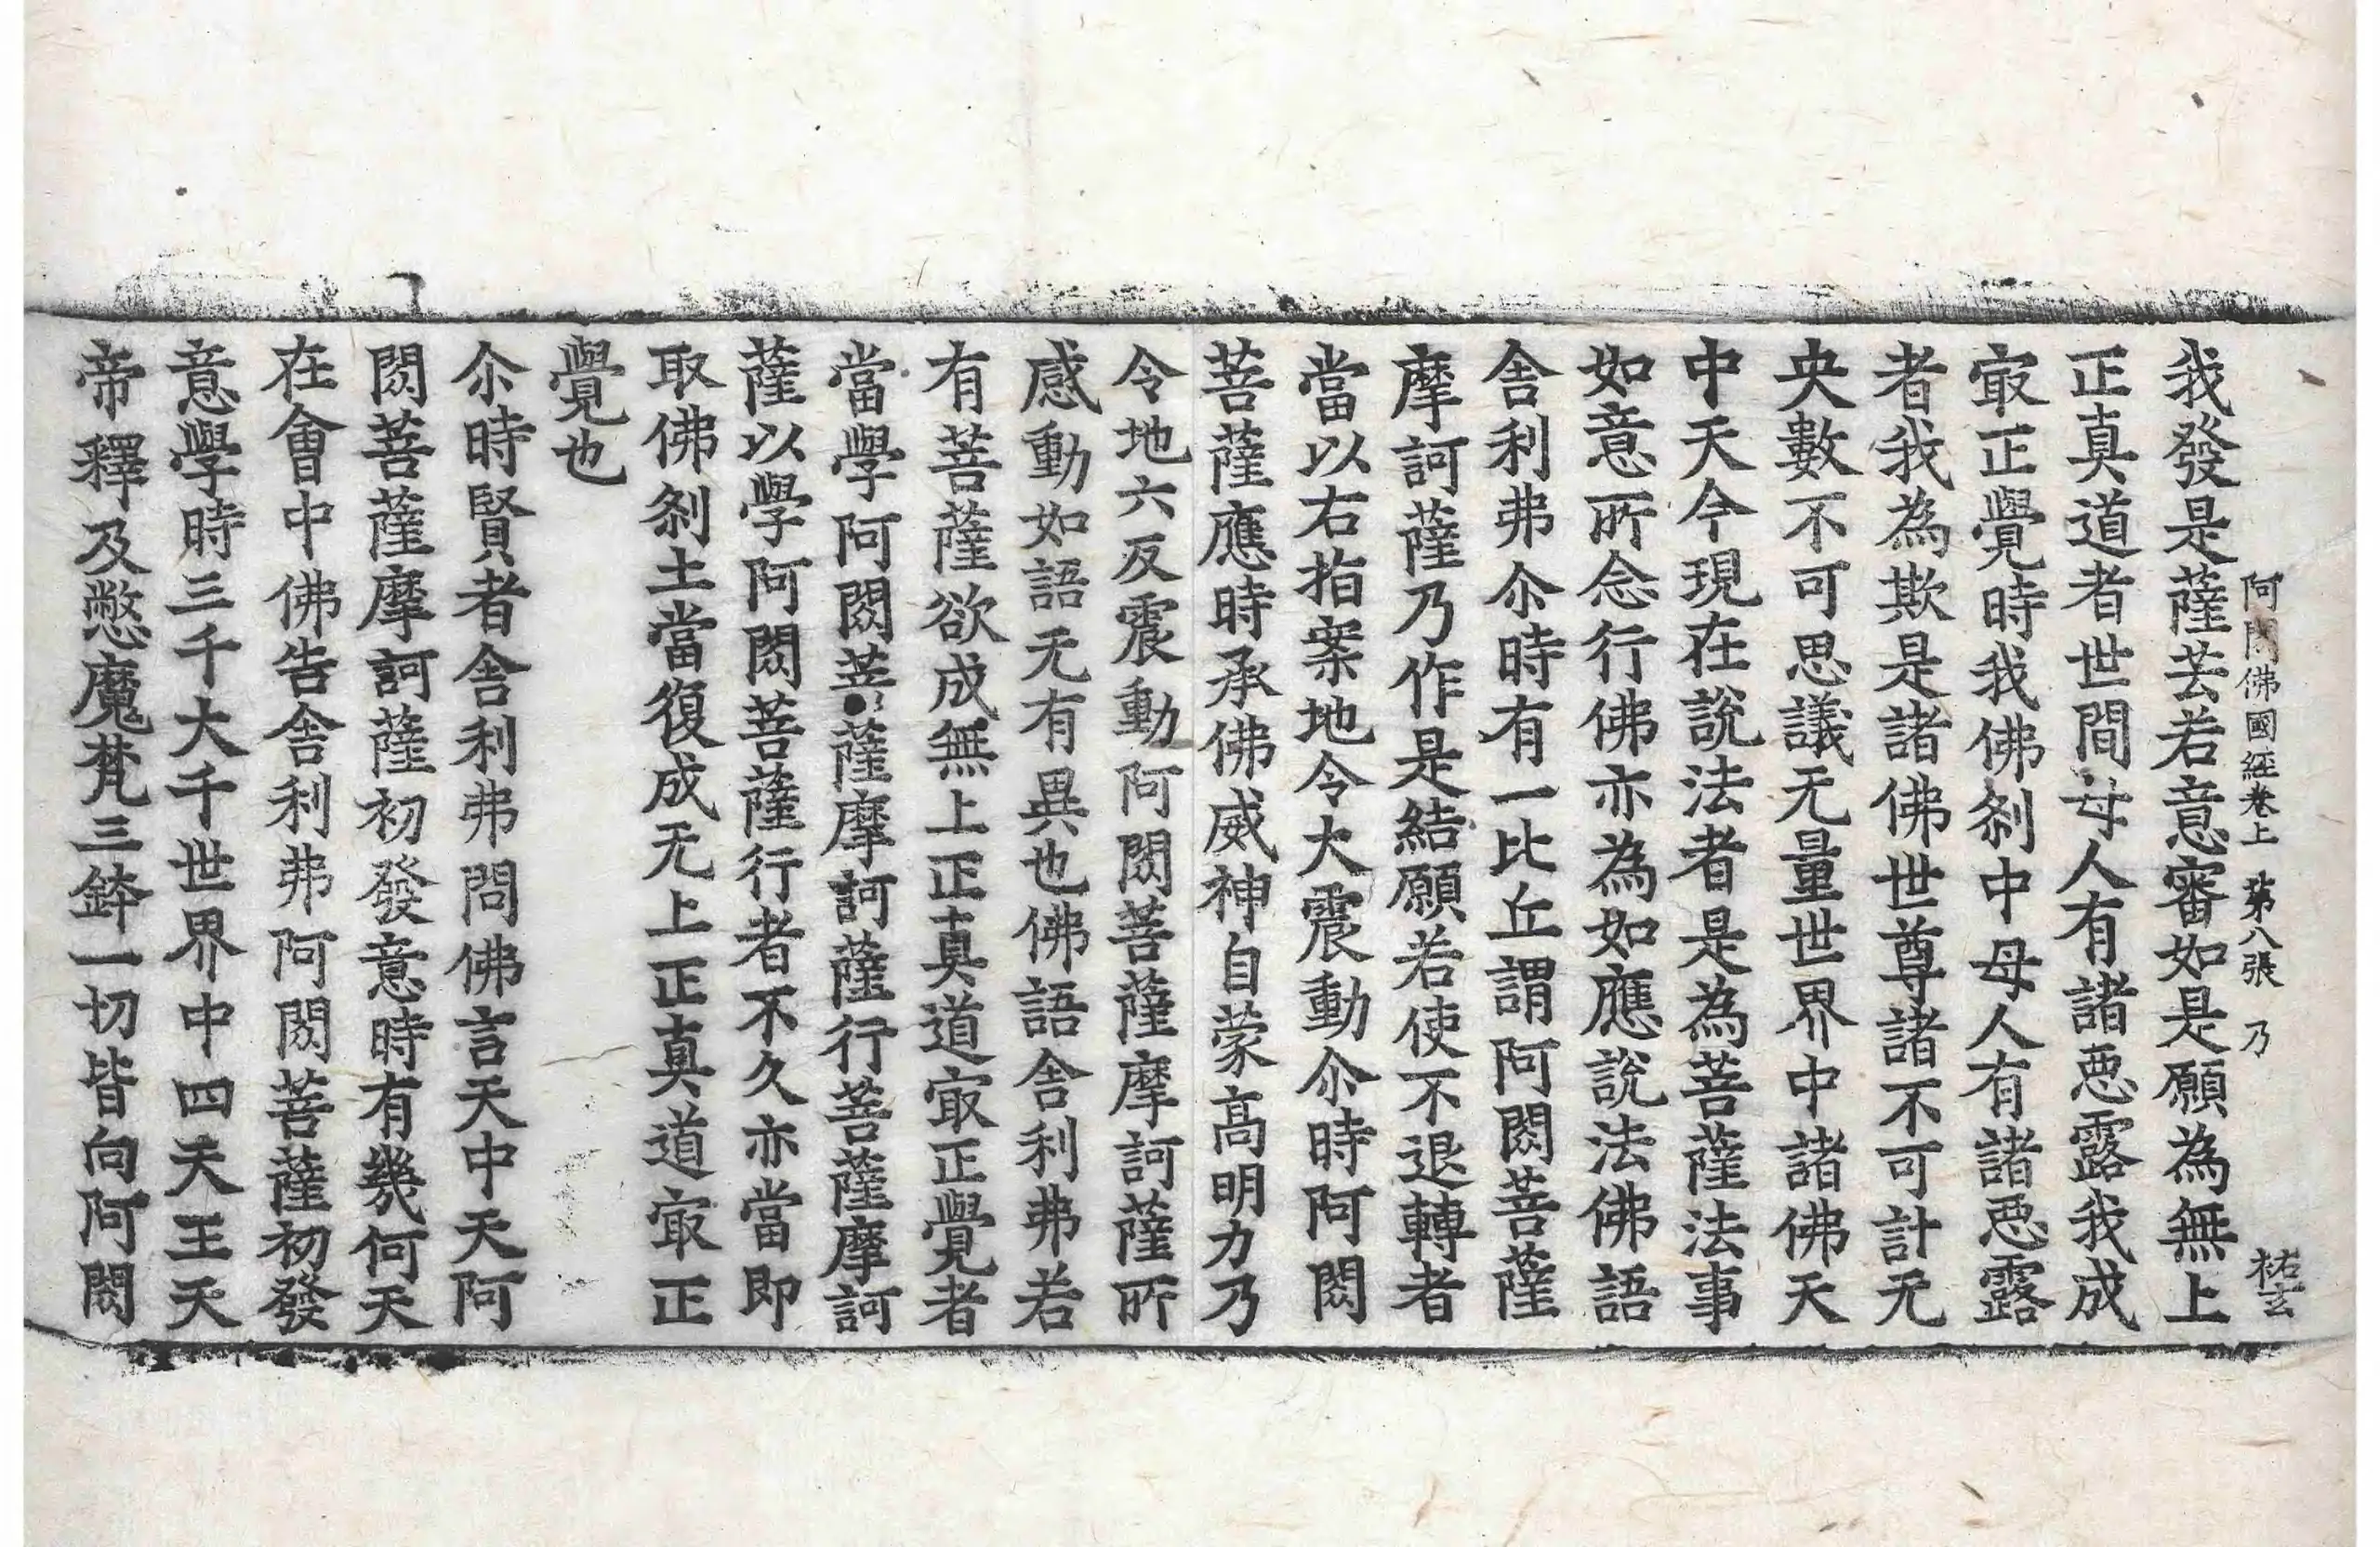 阿閦佛國經卷上 第八張 乃 祐玄
我發是薩芸若意審如是願為無上
正真道者世間母人有諸惡露我成
㝡正覺時我佛剎中母人有諸惡露
者我為欺是諸佛世尊諸不可計无
央數不可思議无量世界中諸佛天
中天今現在說法者是為菩薩法事
如意所念行佛亦為如應說法佛語
舍利弗尒時有一比丘謂阿閦菩薩
摩訶薩乃作是結願若使不退轉者
當以右指案地令大震動尒時阿閦
菩薩應時承佛威神自蒙高明力乃
令地六反震動阿閦菩薩摩訶薩所
感動如語无有異也佛語舍利弗若
有菩薩欲成無上正真道㝡正覺者
當學阿閦菩薩摩訶薩行菩薩摩訶
薩以學阿閦菩薩行者不久亦當即
取佛剎土當復成无上正真道㝡正
覺也
尒時賢者舍利弗問佛言天中天阿
閦菩薩摩訶薩初發意時有幾何天
在會中佛告舍利弗阿閦菩薩初發
意學時三千大千世界中四天王天
帝釋及憋魔梵三鉢一切皆向阿閦